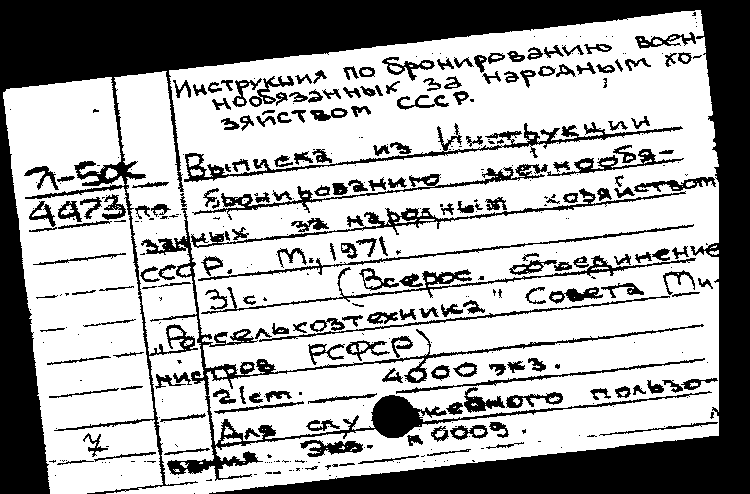 Инструкция по бронированию воен-
нообязанных за народным хо-
зяйством СССР.
Л-50к
4473
Выписка из Инструкции
по бронированию военнообя-
занных за народным хозяйством
СССР. М., 1971.
31с. (Всерос. объединение
„Россельхозтехника" Совета Ми-
нистров РСФСР)
21см. 4000 экз.
Для служебного пользо-
вания. Экз. №0009.